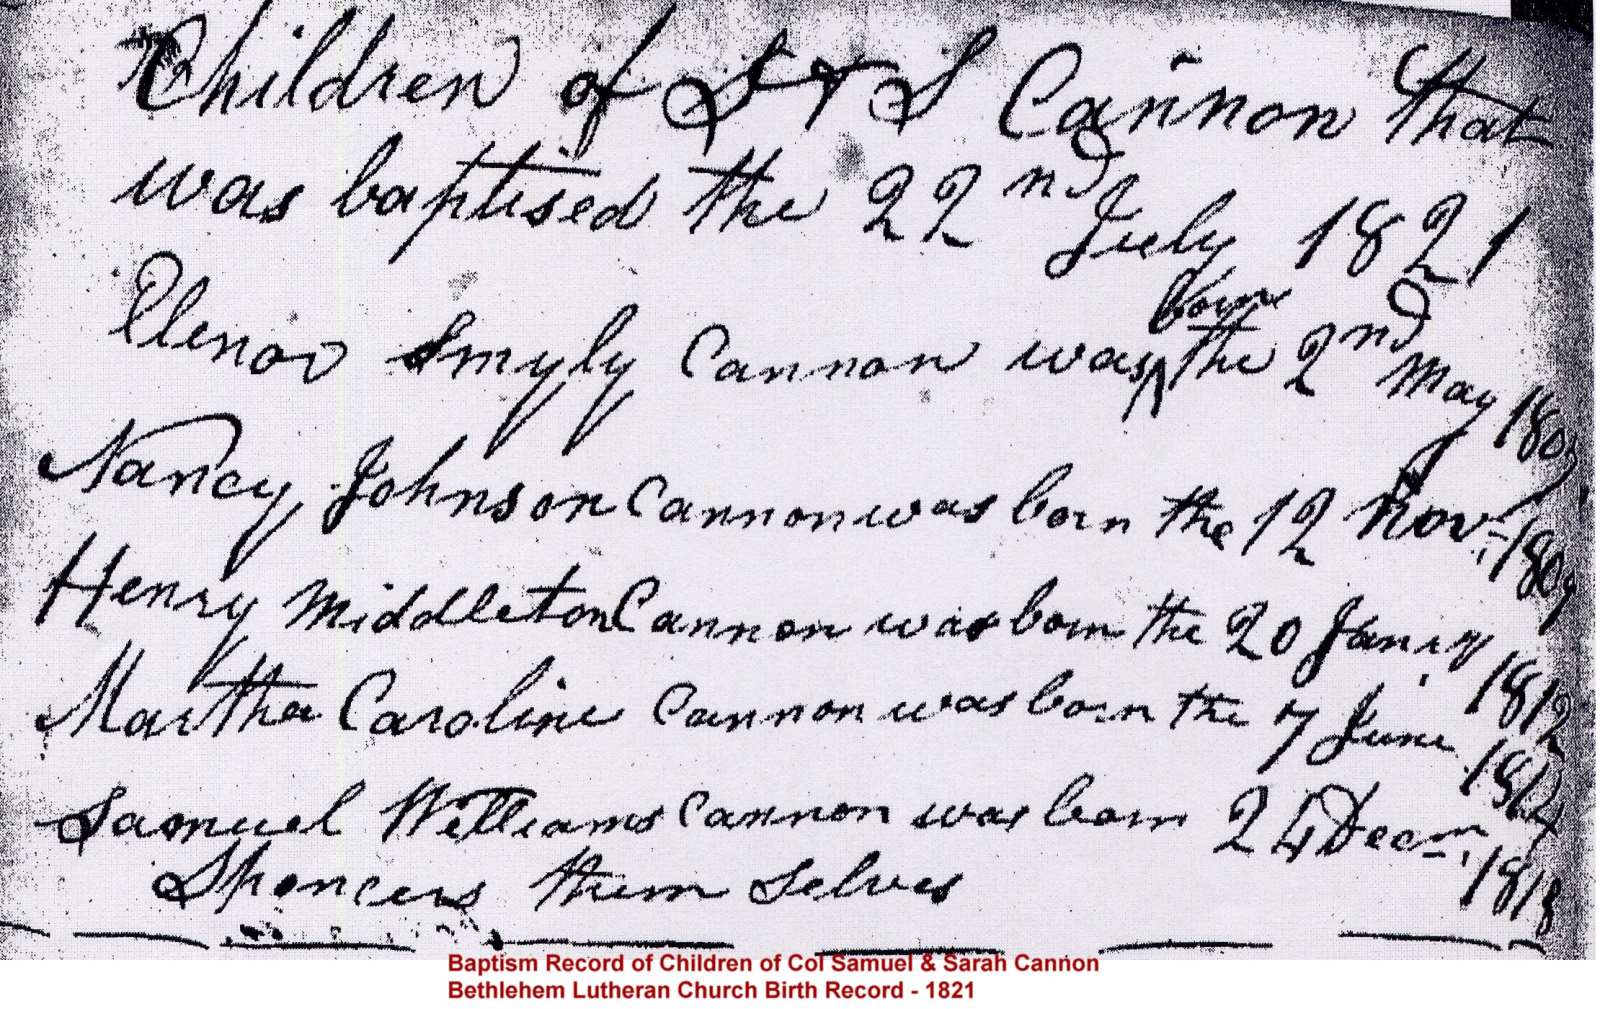 Children of S & S Cannon that
was baptised the 22nd July 1821
Elenor Smyly Cannon was born the 2nd May
Nancy Johnson Cannon was born the 12 Nov. 1809
Henry Middleton Cannon was born the 20 Janry 1812
Martha Caroline Cannon was born the 7 June 1814
Samuel Williams Cannon was born 24 Decm. 1818
Sponcers them selves
Baptism Record of Children of Col Samuel & Sarah Cannon
Bethlehem Lutheran Church Birth Record - 1821